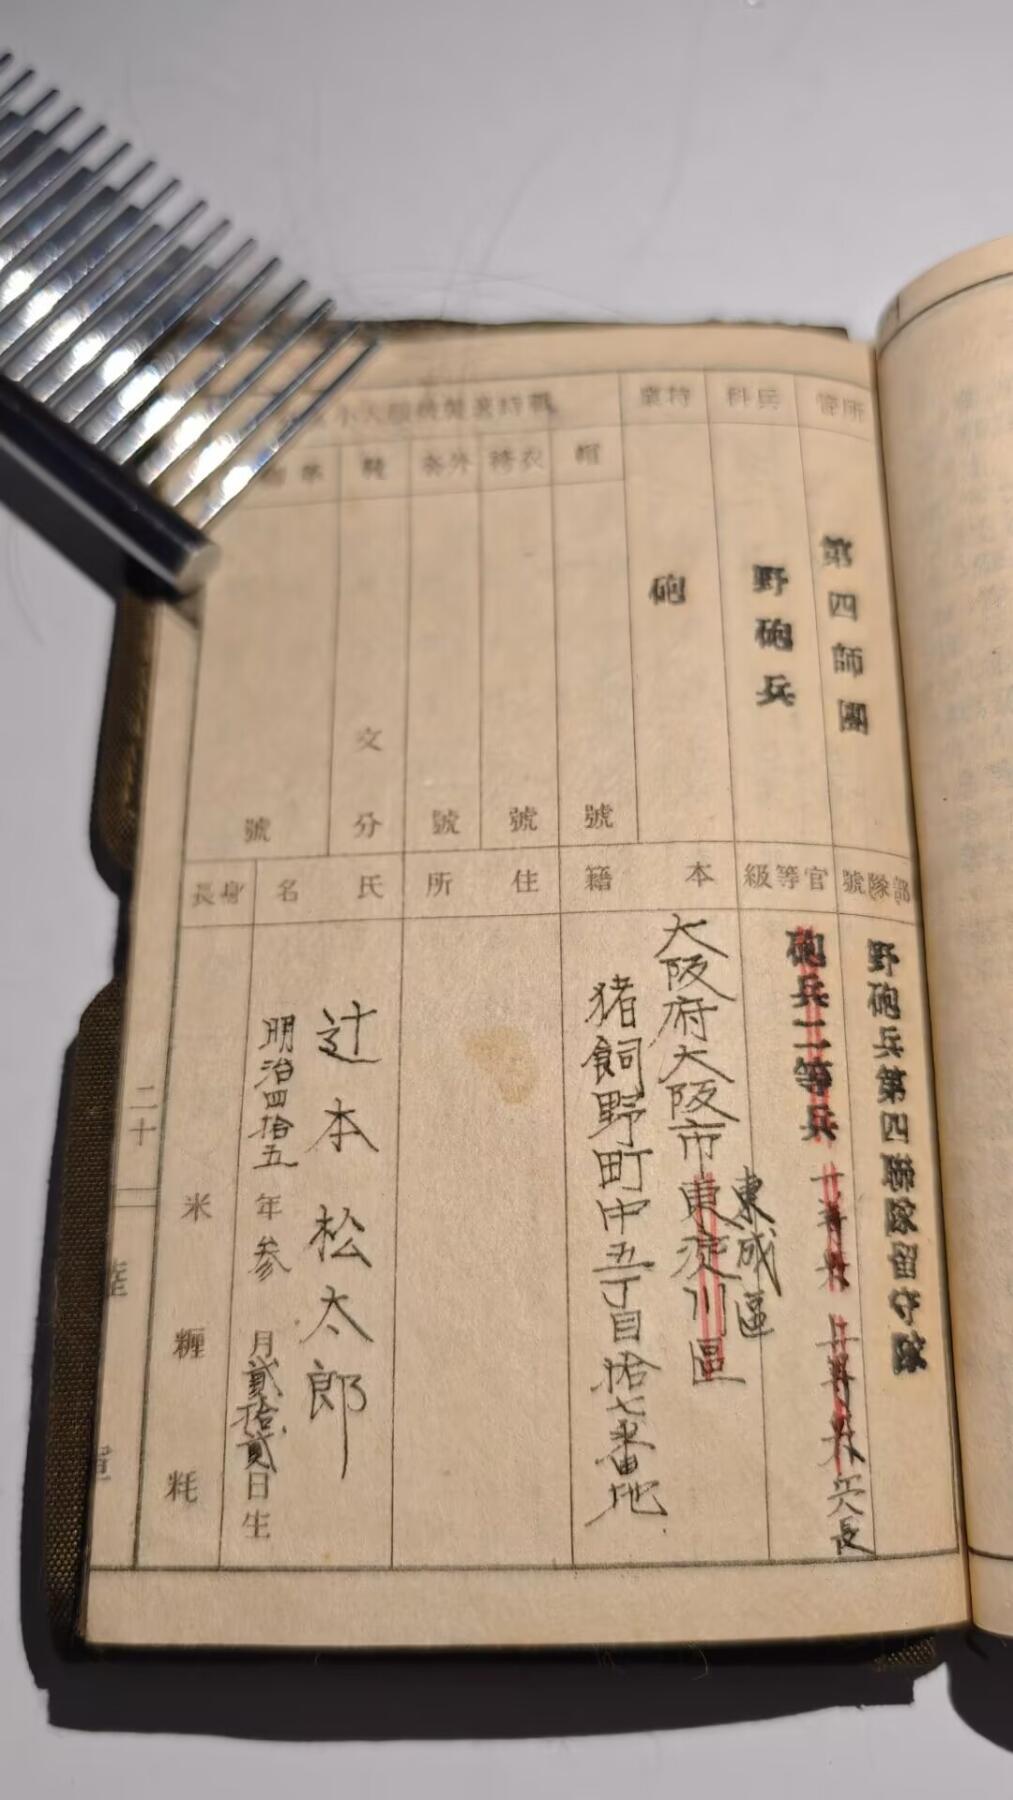 所管
第四師團
兵科
野砲兵
特業
砲
帽
號
衣袴
號
外套
號
靴
文
分
號
部隊號
野砲兵第四聯隊留守隊
官等級
砲兵二等兵
一等兵
上等兵
兵長
本籍
大阪府大阪市東淀川區
東成區
猪飼野町中五丁目拾七番地
住所
氏名
辻本松太郎
明治四拾五年参月貳拾貳日生
身長
米
糎
粍
二十